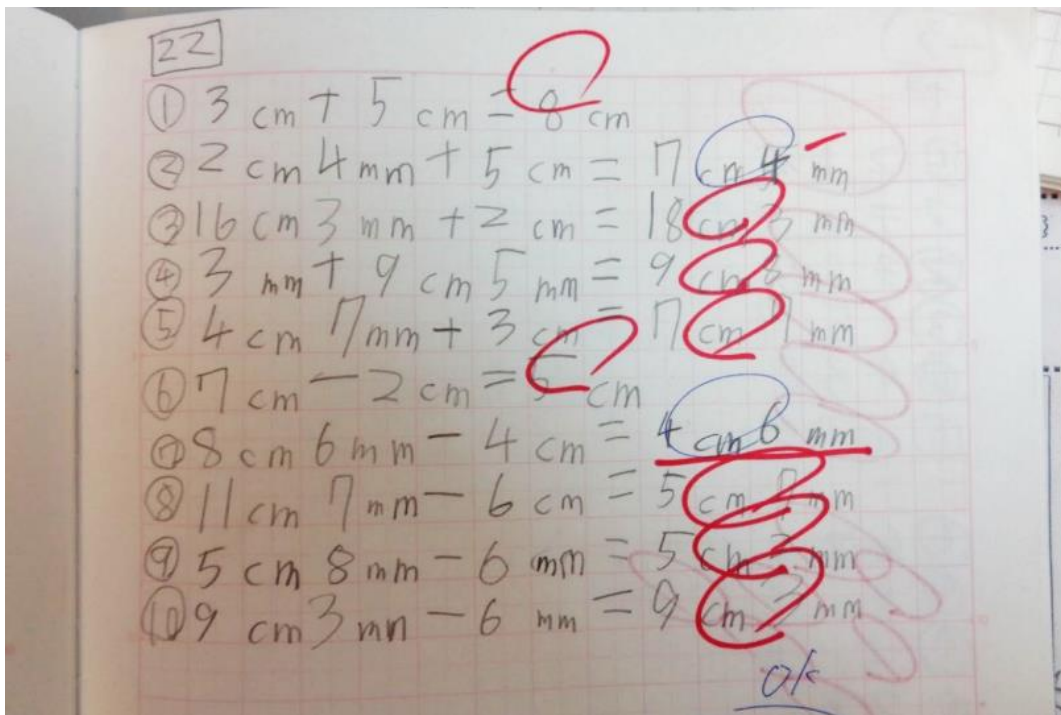 22
① 3 cm + 5 cm = 8 cm
② 2 cm 4 mm + 5 cm = 7 cm 4 mm
③ 16 cm 3 mm + 2 cm = 18 cm 3 mm
④ 3 mm + 9 cm 5 mm = 9 cm 8 mm
⑤ 4 cm 7 mm + 3 cm = 7 cm 7 mm
⑥ 7 cm - 2 cm = 5 cm
⑦ 8 cm 6 mm - 4 cm = 4 cm 6 mm
⑧ 11 cm 7 mm - 6 cm = 5 cm 7 mm
⑨ 5 cm 8 mm - 6 mm = 5 cm mm
⑩ 9 cm 3 mm - 6 mm = 9 cm mm
ok